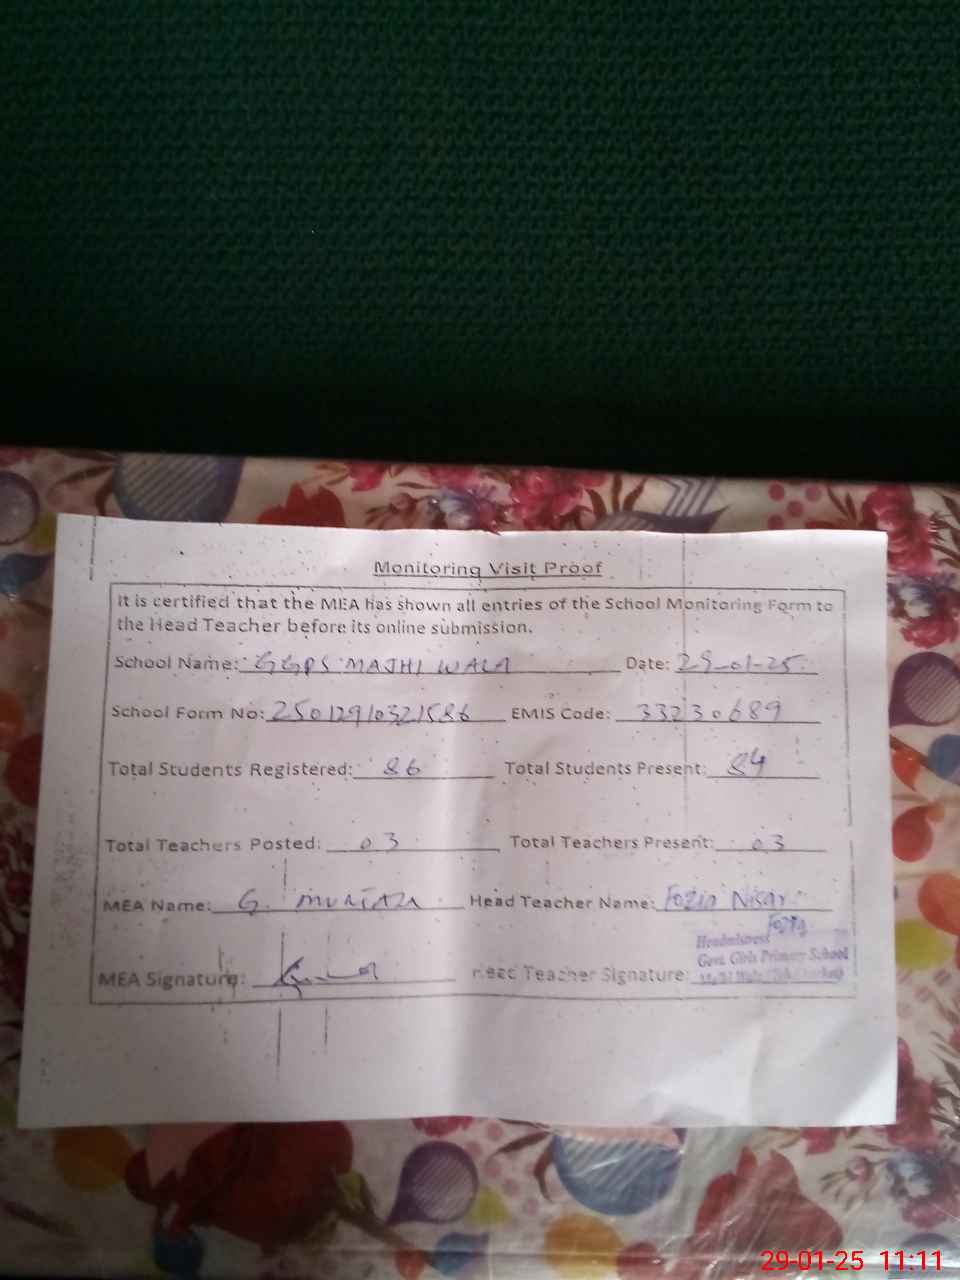 Monitoring Visit Proof
It is certified that the MEA has shown all entries of the School Monitoring Form to
the Head Teacher before its online submission.
School Name: GGPS MAJHI WALA Date: 29-01-25
School Form No: 25012910321586 EMIS Code: 33230689
Total Students Registered: 86 Total Students Present: 84
Total Teachers Posted: 03 Total Teachers Present: 03
MEA Name: G. MURTAZA Head Teacher Name: Fozia Nisar
Fozia
Headmistress
Govt. Girls Primary School
MEA Signature: Head Teacher Signature:
29-01-25 11:11